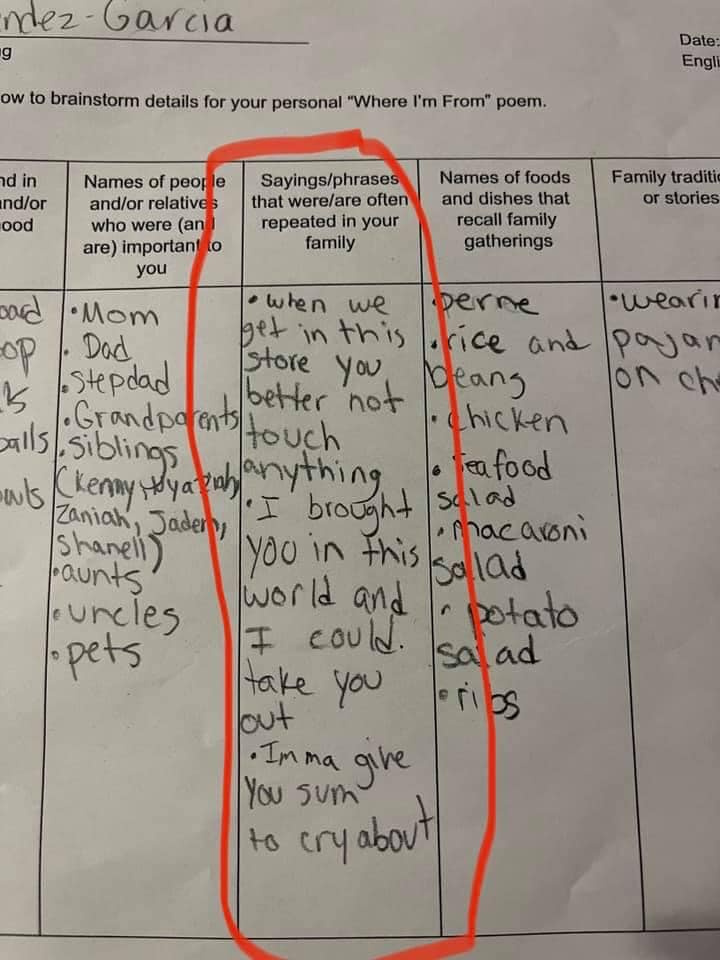 ndez-Garcia
g
Date:
Engli
ow to brainstorm details for your personal "Where I'm From" poem.
nd in
and/or
ood
Names of people
and/or relatives
who were (and
are) important to
you
Sayings/phrases
that were/are often
repeated in your
family
Names of foods
and dishes that
recall family
gatherings
Family traditi
or stories
oard
op
balls
• Mom
• Dad
• Stepdad
• Grandparents
• Siblings
(Kenny,
Zaniah, Jaden,
Shanell)
• aunts
• uncles
• pets
• when we
get in this
store you
better not
touch
anything
• I brought
you in this
world and
I could.
take you
out
• Imma give
You sum
to cry about
perne
• rice and
beans
• chicken
• seafood
salad
• macaroni
salad
• potato
salad
• ribs
• wearin
pajam
on ch